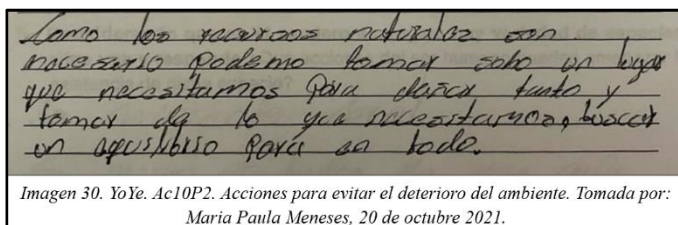 Como los recursos naturales son
necesario podemo tomar solo un lugar
que necesitamos para dañar tanto y
tomar de lo que necesitamos, buscar
un equilibrio para en todo.
Imagen 30. YoYe. Ac10P2. Acciones para evitar el deterioro del ambiente. Tomada por:
Maria Paula Meneses, 20 de octubre 2021.